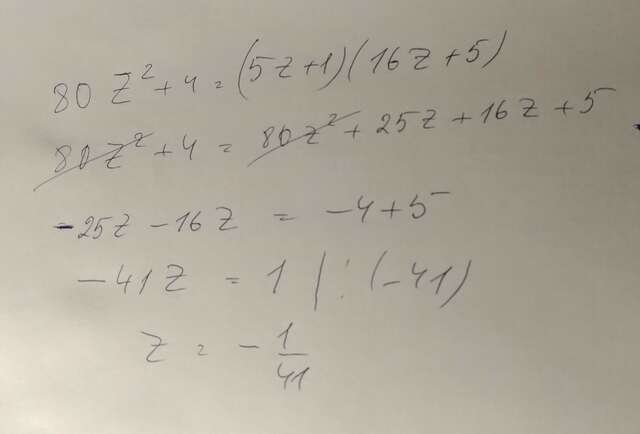 80 Z² + 4 = (5Z+1)(16Z+5)
80Z² + 4 = 80Z² + 25Z + 16Z + 5
-25Z - 16Z = -4+5
-41Z = 1 | : (-41)
Z = - 1/41